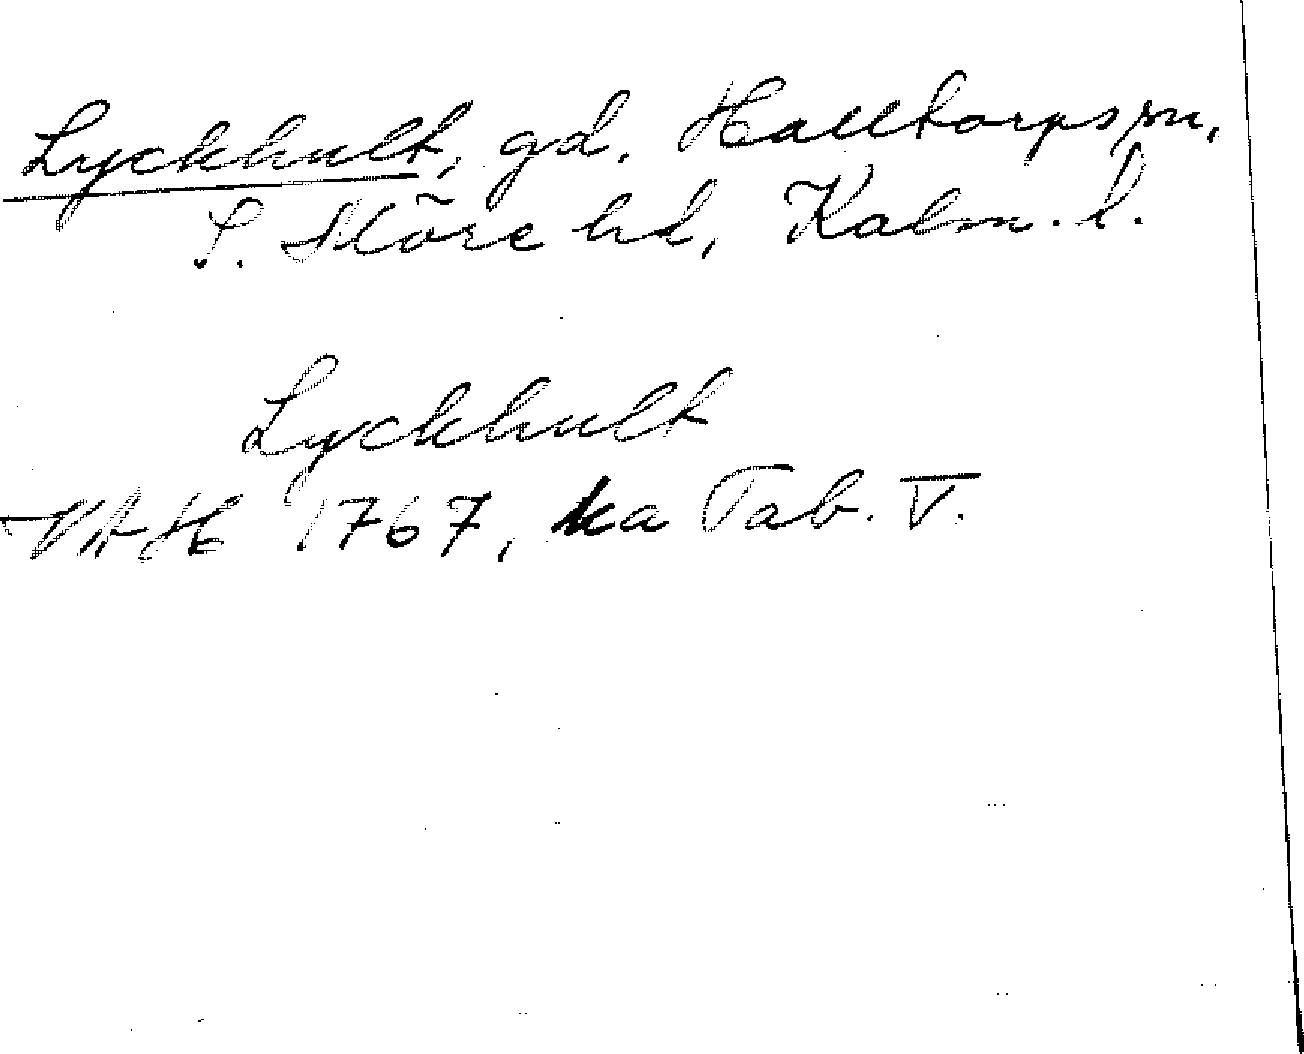 Lyckhult, gd. Halltorps sn,
S. Möre hd, Kalm. l.
Lyckhult
VAH 1767, ka Tab. V.